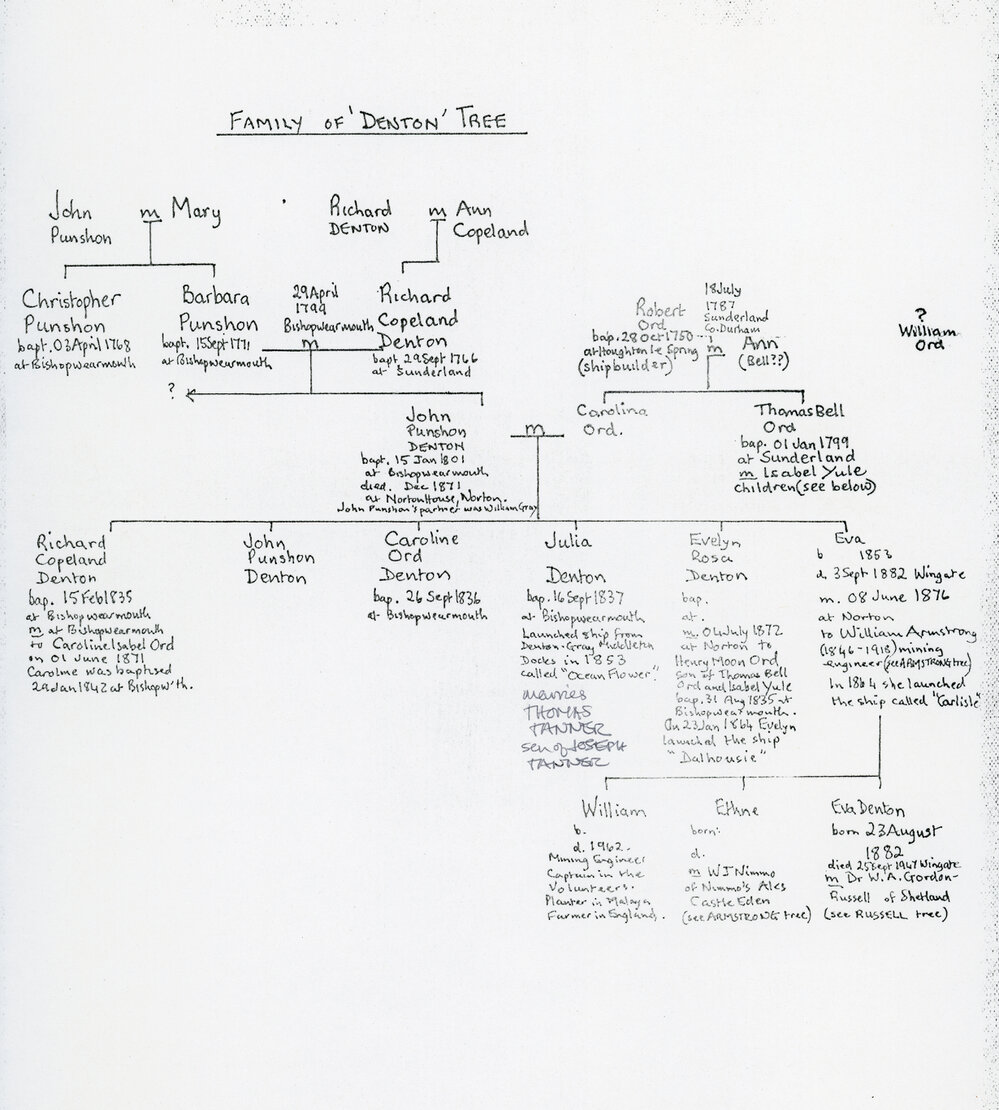 FAMILY OF 'DENTON' TREE
John
Punshon
m Mary
Richard
DENTON
m Ann
Copeland
Christopher
Punshon
bapt. 03 April 1768
at Bishopwearmouth
Barbara
Punshon
bapt. 15 Sept 1771
at Bishopwearmouth
29 April
1799
Bishopwearmouth
m
Richard
Copeland
Denton
bapt 29 Sept 1766
at Sunderland
Robert
Ord
bap. 28 Oct 1750
at Houghton le Spring
(shipbuilder)
18 July
1787
Sunderland
Co. Durham
m Ann
(Bell??)
?
William
Ord
?
John
Punshon
DENTON
bapt. 15 Jan 1801
at Bishopwearmouth
died. Dec 1871
at Norton House, Norton.
John Punshon's partner was William Gray
m
Carolina
Ord.
Thomas Bell
Ord
bap. 01 Jan 1799
at Sunderland
m Isabel Yule
children (see below)
Richard
Copeland
Denton
bap. 15 Feb 1835
at Bishopwearmouth
m at Bishopwearmouth
to Caroline Isabel Ord
on 01 June 1871
Caroline was baptised
29 Jan 1842 at Bishopw'th.
John
Punshon
Denton
Caroline
Ord
Denton
bap. 26 Sept 1836
at Bishopwearmouth
Julia
Denton
bap. 16 Sept 1837
at Bishopwearmouth
Launched ship from
Denton-Gray Middleton
Docks in 1853
called "Ocean Flower".
marries
THOMAS
TANNER
son of JOSEPH
TANNER
Evelyn
Rosa
Denton
bap.
at.
m. 04 July 1872
at Norton to
Henry Moon Ord
son of Thomas Bell
Ord and Isabel Yule
bap. 31 Aug 1835 at
Bishopwearmouth.
On 23 Jan 1864 Evelyn
launched the ship
"Dalhousie"
Eva
b 1853
d. 3 Sept 1882 Wingate
m. 08 June 1876
at Norton
to William Armstrong
(1846-1918) mining
engineer (see ARMSTRONG tree)
In 1864 she launched
the ship called "Carlisle"
William
b.
d. 1962.
Mining Engineer
Captain in the
Volunteers.
Planter in Malaya
Farmer in England.
Ethne
born:
d.
m WJ Nimmo
of Nimmo's Ales
Castle Eden
(see ARMSTRONG tree)
Eva Denton
born 23 August
1882
died 25 Sept 1947 Wingate
m Dr W.A. Gordon-
Russell of Shetland
(see RUSSELL tree)